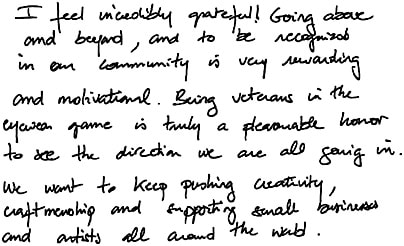 I feel incredibly grateful! Going above
and beyond, and to be recognized
in our community is very rewarding
and motivational. Being veterans in the
eyewear game is truly a pleasurable honor
to see the direction we are all going in.
We want to keep pushing creativity,
craftmenship and supporting small businesses
and artists all around the world.